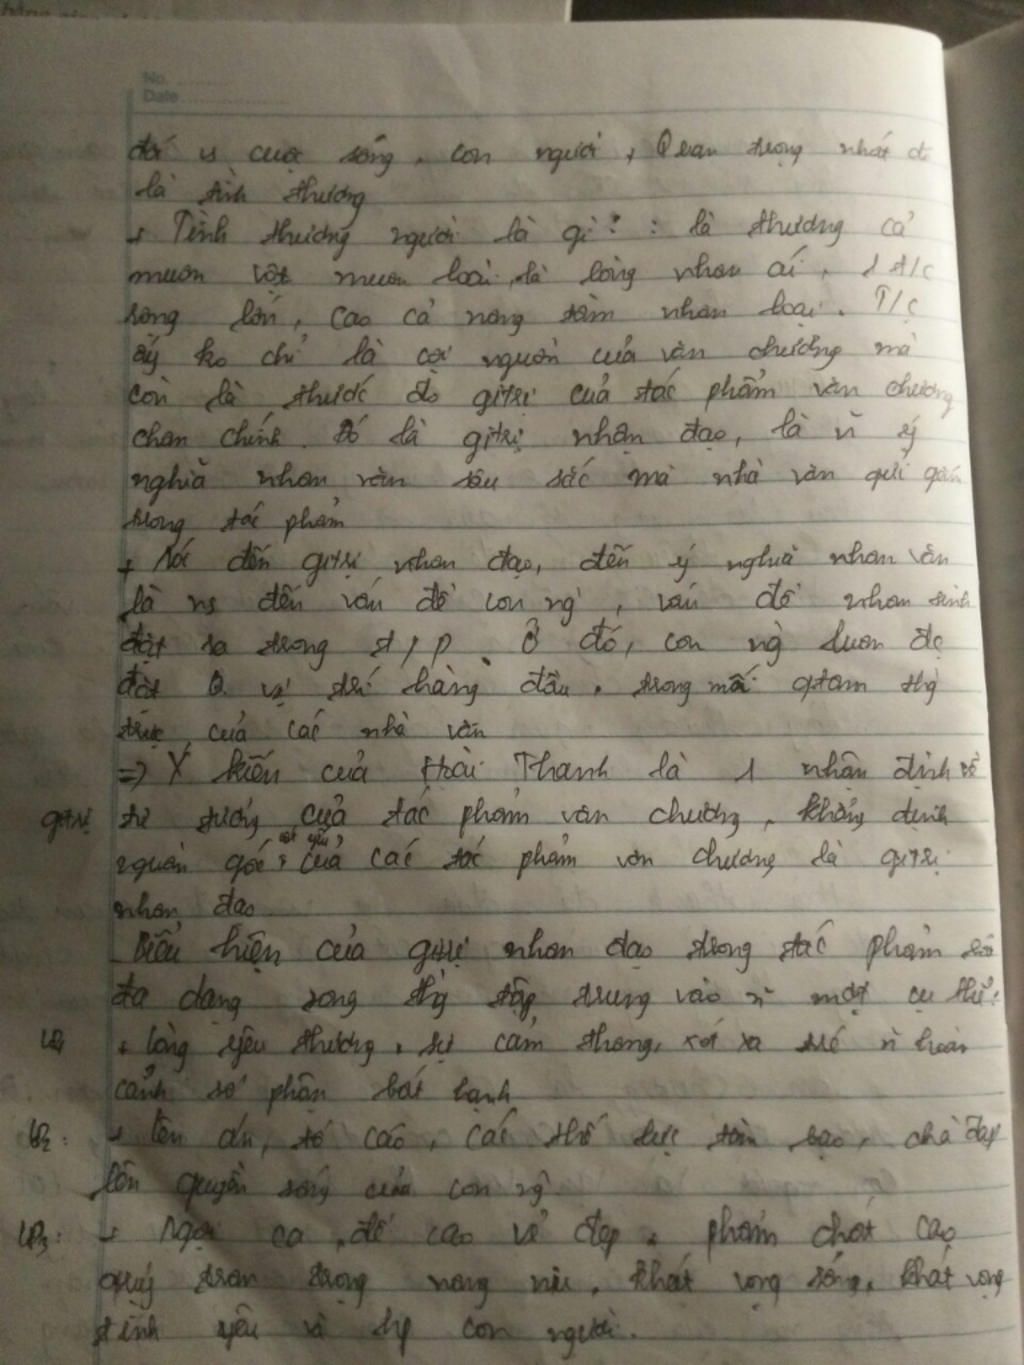 No.
Date
đối vs cuộc sống, con người, Quan trọng nhất đó
là tình thương
+ Tình thương người là gì? : là thương cả
muôn vật muôn loài, là lòng nhân ái, 1 t/c
rộng lớn, cao cả nâng tầm nhân loại. T/c
ấy ko chỉ là cội nguồn của văn chương mà
còn là thước đo gitrị của tác phẩm văn chương
chân chính. Đó là gitrị nhân đạo, là ~ ý
nghĩa nhân văn sâu sắc mà nhà văn gửi gắm
trong tác phẩm
+ Nói đến gitrị nhân đạo, đến ý nghĩa nhân văn
là ns đến vấn đề con ng', vấn đề nhân sinh
đặt ra trong t/p. Ở đó, con ng luôn đc
đặt ở vị trí hàng đầu, trong mối qtâm thg
trực của các nhà văn
=> Ý kiến của Hoài Thanh là 1 nhận định về
gitrị tư tưởng của tác phẩm văn chương, khẳng định
nguồn gốc, cốt yếu của các tác phẩm văn chương là gitrị
nhân đạo
Biểu hiện của gitrị nhân đạo trong tác phẩm
đa dạng song thg tập trung vào ~ mặt cụ thể:
+ lòng yêu thương, sự cảm thông, xót xa trc ~ hoàn
cảnh số phận bất hạnh
Lđ2: + lên án, tố cáo, các thế lực tàn bạo, chà đạp
lên quyền sống của con ng
Lđ3: + Ngợi ca, đề cao vẻ đẹp, phẩm chất cao
quý trân trọng nâng niu, khát vọng sống, khát vọng
tình yêu và hp con người.